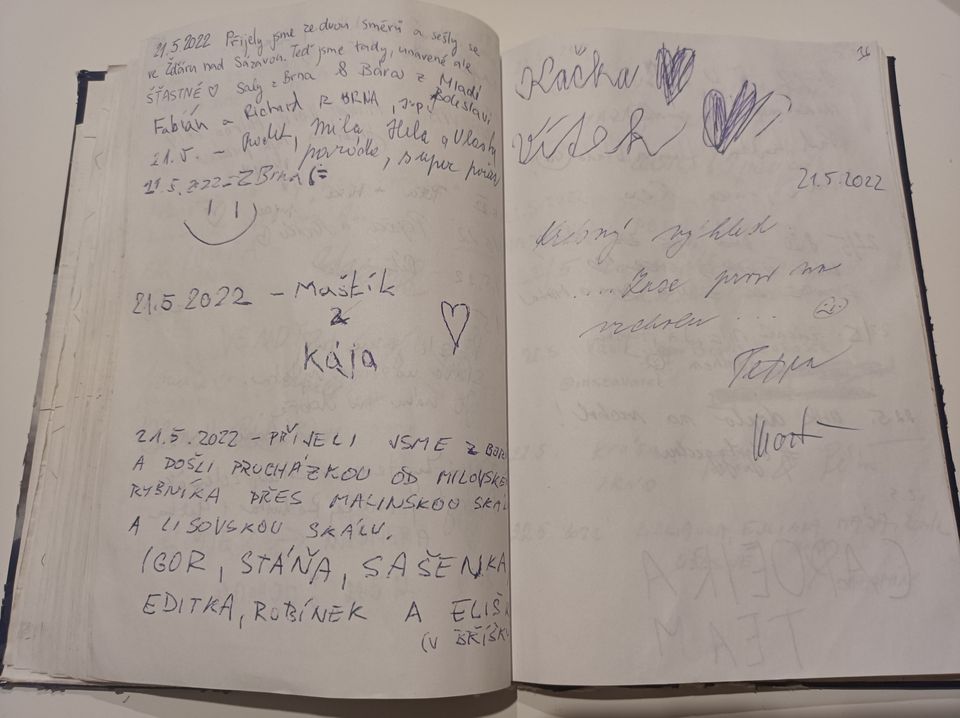 21.5.2022 Přijely jsme ze dvou směrů a sešly se
ve Žďáru nad Sázavou. Teď jsme tady, unavené ale
ŠŤASTNÉ ♡ Saly z Brna & Bára z Mladé
Boleslavi
Fabián a Richard z BRNA
21.5. – Mila, Hela a Vlasta
super
21.5. 2022 – Z Brna (=
21.5.2022 – Maštík
z
Kája
21.5.2022 – PŘIJELI JSME Z
A DOŠLI PROCHÁZKOU OD MILOVSKÉ
RYBNÍKA PŘES MALINSKOU SKÁL
A LISOVSKOU SKÁLU.
IGOR, STÁŇA, SAŠENKA
EDITKA, ROBÍNEK A ELIŠK
(V BŘÍŠKU
Kačka
Vítek
21.5.2022
výhled
.... Zase první na
vrcholu ...
Petra